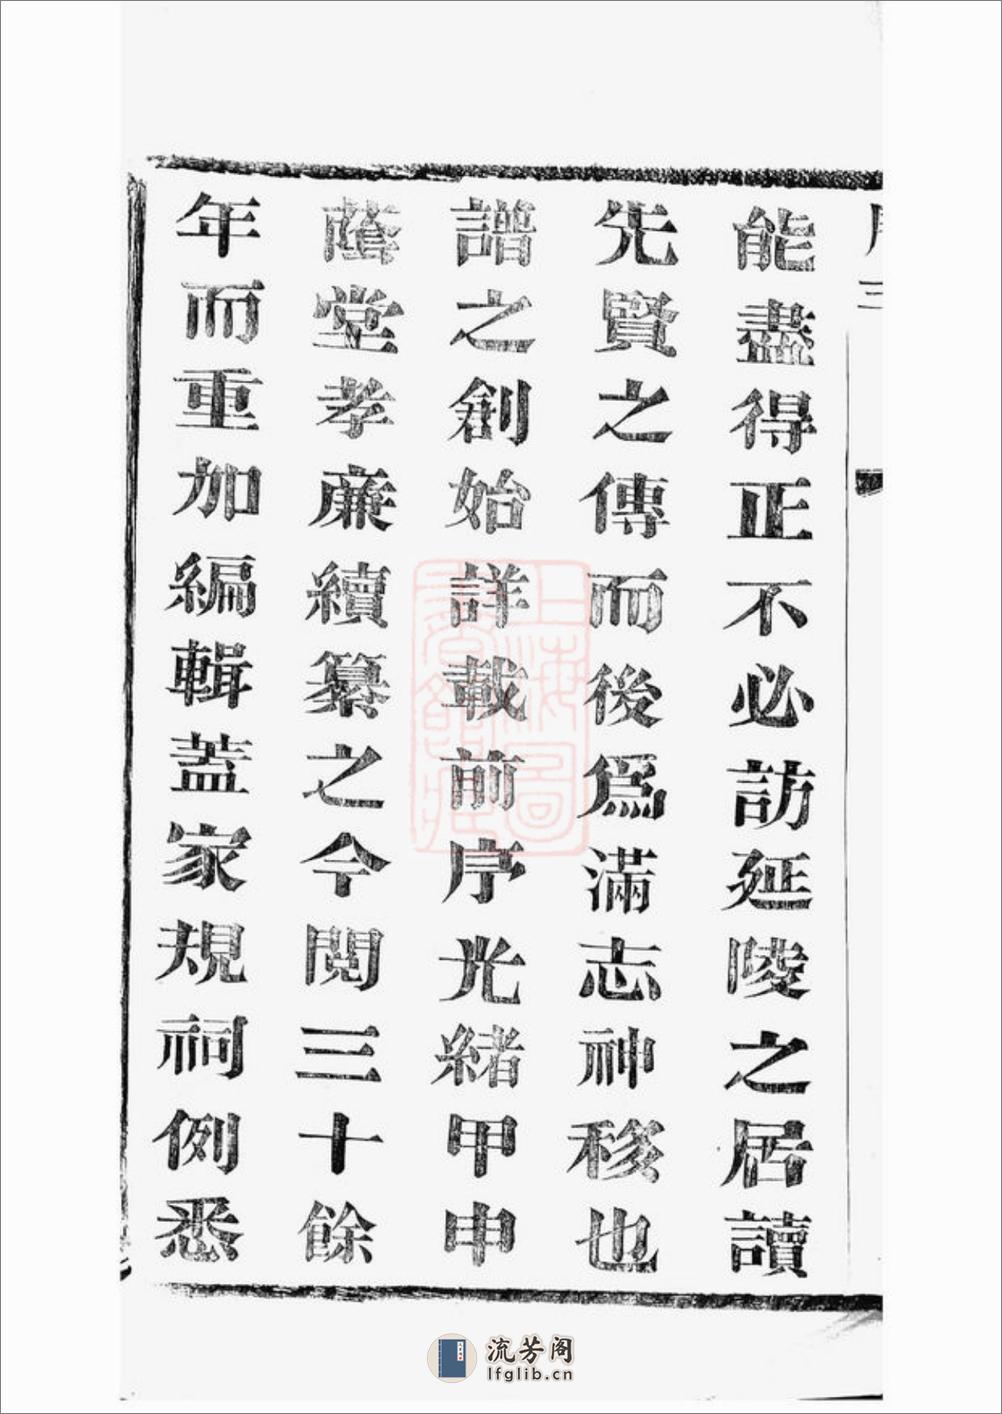 能盡得正不必訪延陵之居讀
先賢之傳而後爲滿志神移也
譜之創始詳載前序光緒甲申
蔭堂孝亷續纂之今閲三十餘
年而重加編輯蓋家規祠例悉
上海圖書館藏
流芳阁
lfglib.cn